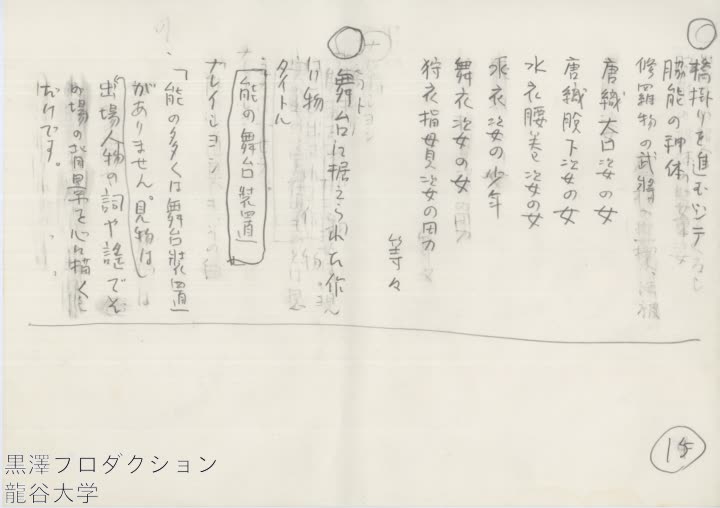 橋掛りを進むシテ
脇能の神体
修羅物の武将
唐織大口姿の女
唐織脱下姿の女
水衣腰巻姿の女
水衣姿の少年
舞衣姿の女
狩衣指貫姿の男
等々
舞台に据えられた作
り物
タイトル
能の舞台装置
ナレイション
「能の多くは舞台装置
がありません。見物は、
出場人物の詞や謡でそ
の場の背景を心に描く
だけです。
15
黒澤プロダクション
龍谷大学